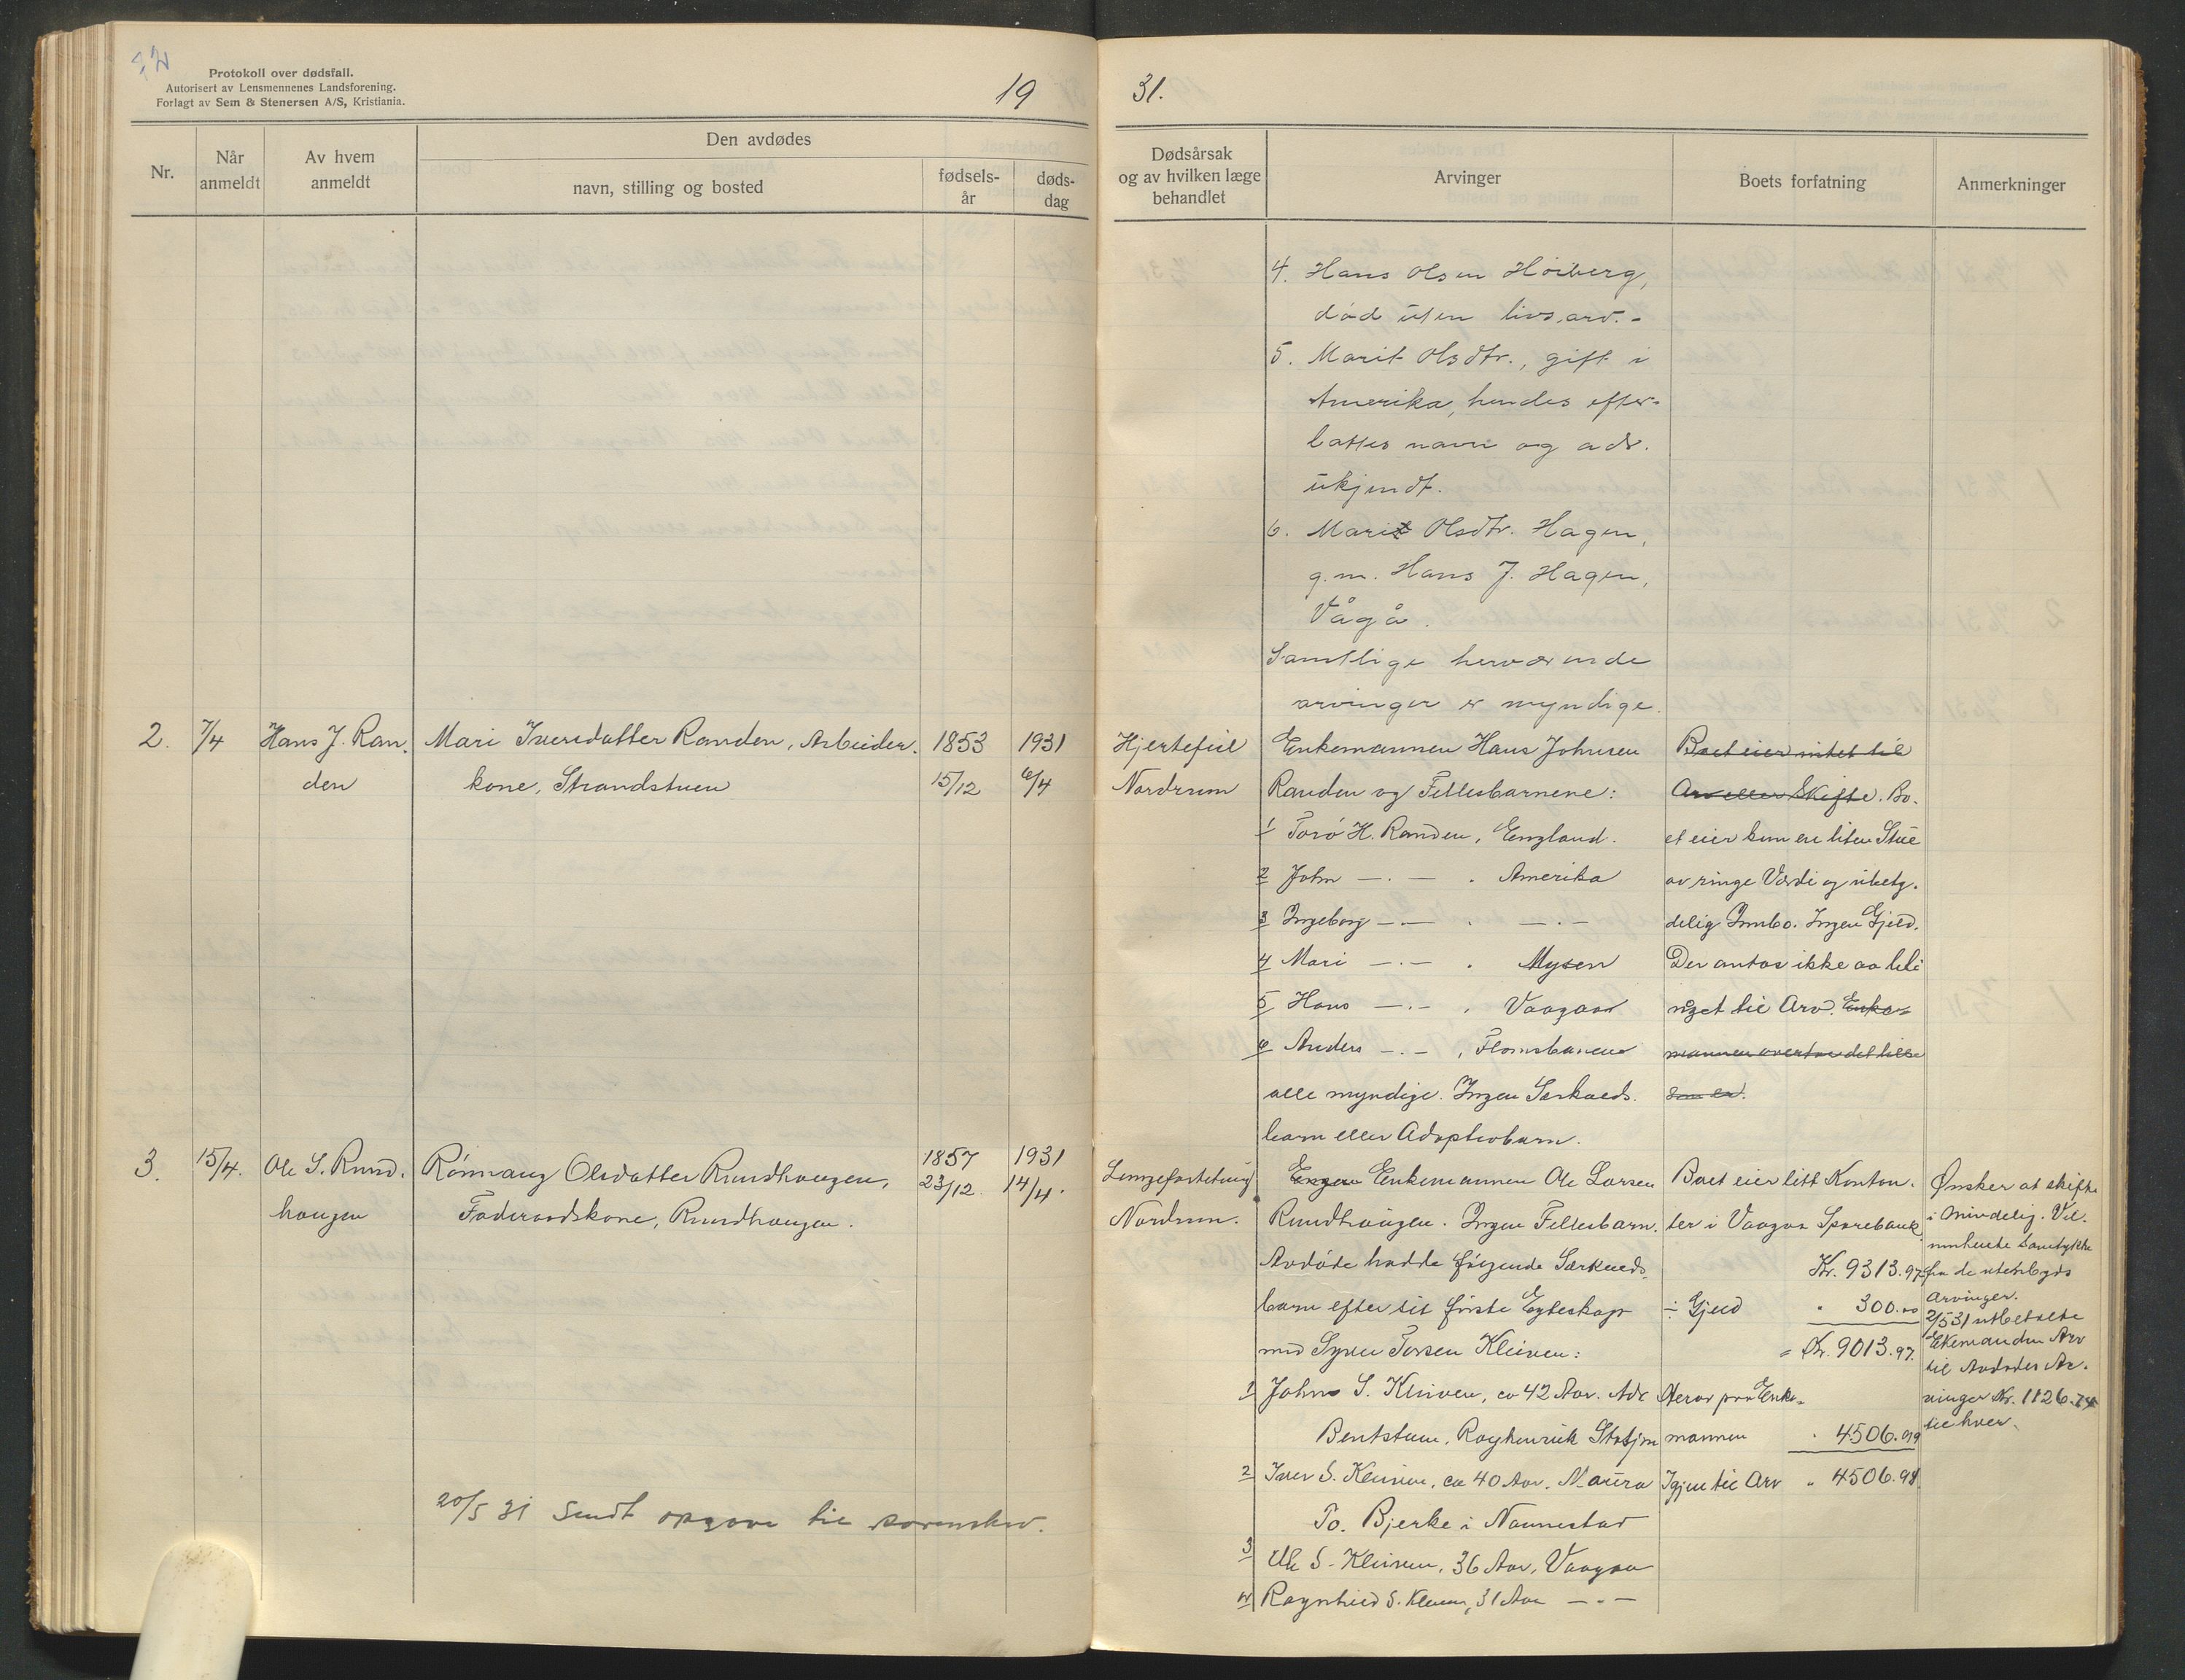 Protokoll over dødsfall.
Autorisert av Lensmennenes Landsforening.
Forlagt av Sem & Stenersen A/S, Kristiania.
19
31.
Nr.
Når anmeldt
Av hvem anmeldt
Den avdødes
navn, stilling og bosted
fødsels-år
døds-dag
Dødsårsak og av hvilken læge behandlet
Arvinger
Boets forfatning
Anmerkninger
4. Hans Olsen Høiberg,
død uten livsarv.-
5. Marit Olsdtr., gift i
Amerika, hendes efter-
lattes navn og adr.
ukjendt.
6. Mari Olsdtr. Hagen,
g.m. Hans J. Hagen,
Vågå.
Samtlige herværende
arvinger er myndige.
2.
7/4
Hans J. Ran-
den
Mari Iversdatter Randen, Arbeider-
kone, Strandstuen
1853
15/12
1931
6/4
Hjertefeil
Nordrum
Enkemannen Hans Johnsen
Randen og Fellesbarnene:
1 Torø H. Randen, England.
2 John —.— . Amerika
3 Ingeborg —.— . —.—
4 Mari —.— . Mysen
5 Hans —.— . Vaagaa
6 Anders —.— , Flomsbanen
alle myndige. Ingen Særkulds-
barn eller Adoptivbarn.
Boet eier intet til
Arv eller Skifte. Bo-
et eier kun en liten Stue
av ringe Værdi og ubety-
delig Innbo. Ingen Gjeld.
Der antas ikke aa bli
noget til Arv. Enke-
mannen overtar det lille
som er.
3.
15/4.
Ole L. Rund-
haugen
Rønnaug Olsdatter Rundhaugen,
Føderaadskone, Rundhaugen.
1857
23/12.
1931
14/4.
Lungefortetning
Nordrum.
Enkemannen Ole Larsen
Rundhaugen. Ingen Fellesbarn.
Avdøde hadde følgende Særkulds-
barn efter sit første Egteskap
med Syver Torsen Kleiven:
1 John S. Kleiven, ca 42 Aar. Adr
Bentstuen, Røykenvik Stasjon
2 Iver S. Kleiven, ca 40 Aar. Maura
Po. Bjerke i Nannestad
3 Ole S. Kleiven, 36 Aar, Vaagaa
4 Ragnhild S. Kleiven, 31 Aar —.—
Boet eier litt Kontan-
ter i Vaagaa Sparebank
Kr. 9313.97
÷ Gjeld " 300.00
= Kr. 9013.97.
Herav paa Enke-
mannen " 4506.99
Igjen til Arv " 4506.98
Ønsker at skifte
i Mindelig. Vil
innhente Samtykke
fra de utenbygds
Arvinger.
2/5 31 utbetalte
Ekemanden Arv
til Avdødes Ar-
vinger Kr. 1126.74
til hver.
20/5 31 Sendt opgave til sorenskr.